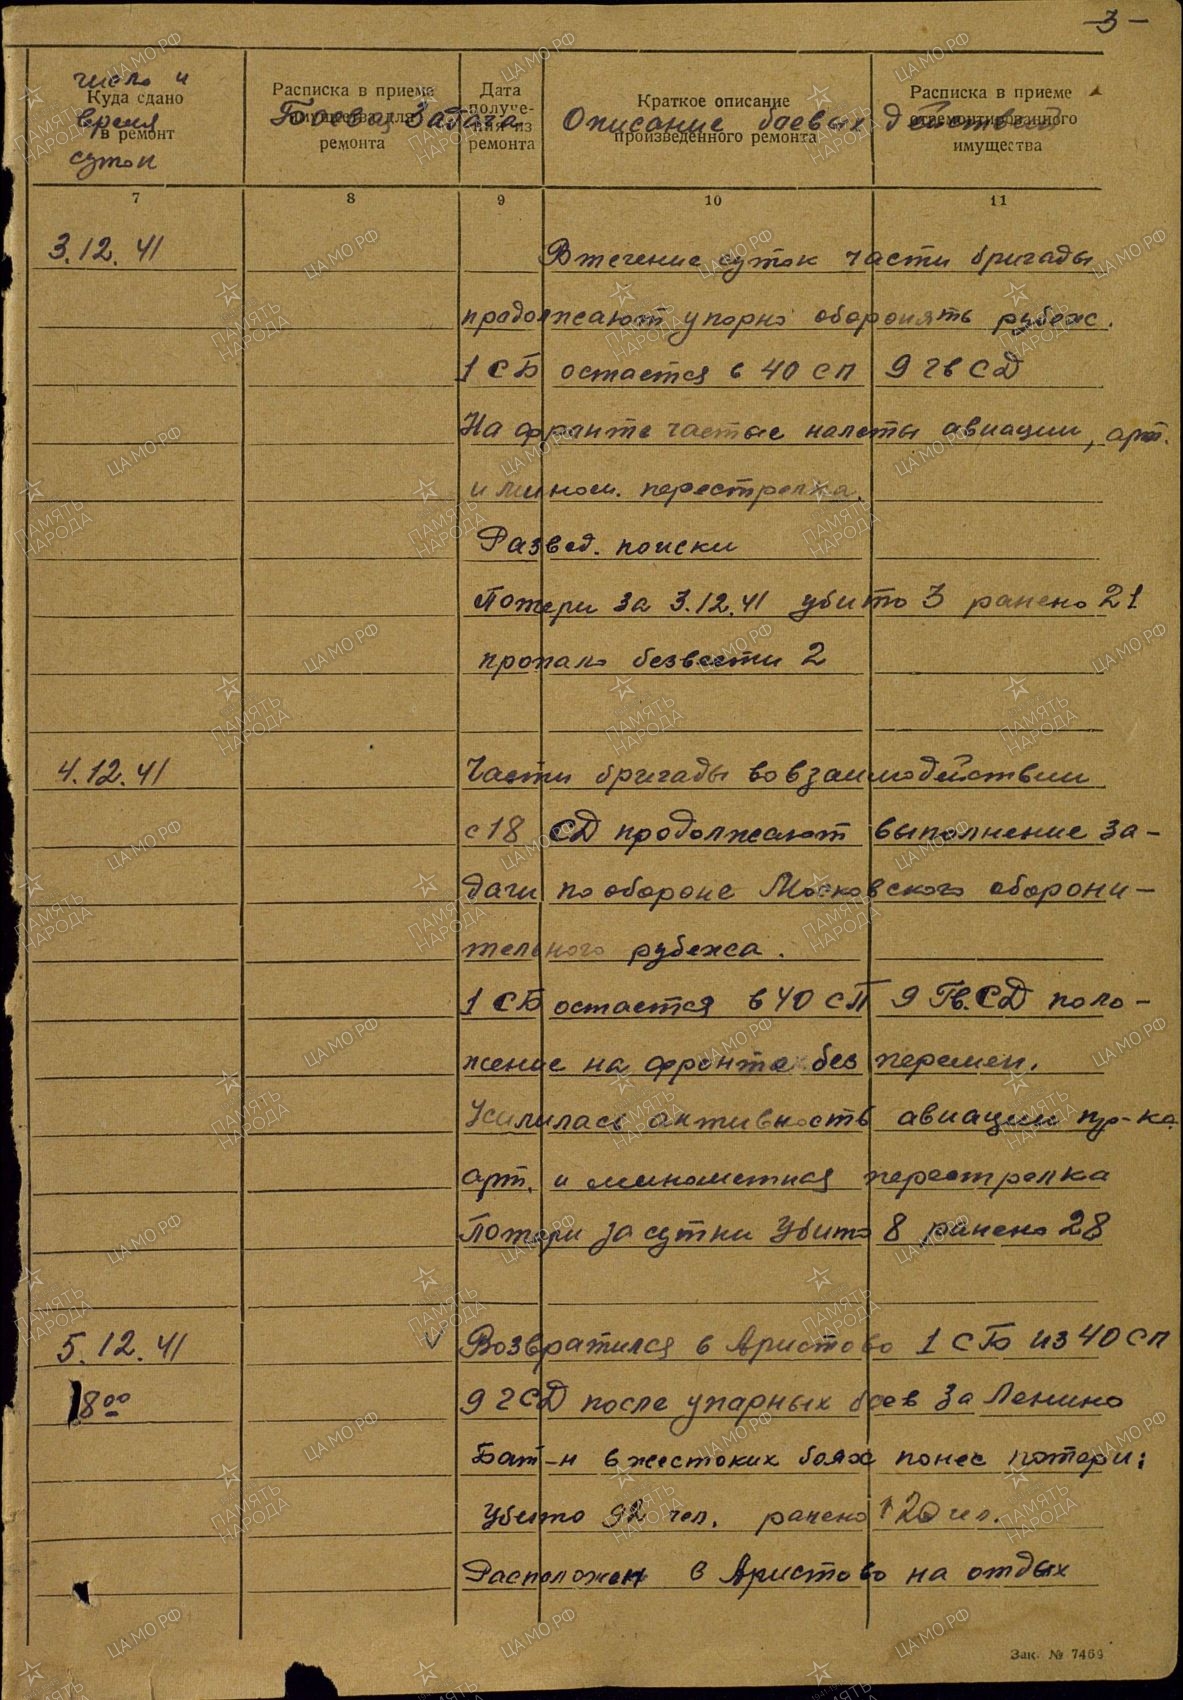 -3-
число и
Куда сдано
время
в ремонт
суток
Расписка в приеме
имущества для
ремонта
Боевая Задача
Дата
получе-
ния из
ремонта
Краткое описание
Описание боевых действий
произведенного ремонта
Расписка в приеме
отремонтированного
имущества
7 8 9 10 11
3.12.41 В течение суток части бригады
продолжают упорно оборонять рубеж.
1 СБ остается в 40 сп 9 гв СД
На фронте частые налеты авиации, арт.
и мином. перестрелка.
Развед. поиски
Потери за 3.12.41 убито 3 ранено 21
пропало безвести 2
4.12.41 Части бригады во взаимодействии
с 18 СД продолжают выполнение за-
дачи по обороне Московского оборони-
тельного рубежа.
1 СБ остается в 40 СП 9 Гв.СД поло-
жение на фронте без перемен.
Усилилась активность авиации пр-ка
арт. и минометная перестрелка
Потери за сутки Убито 8 ранено 28
5.12.41 V Возвратился в Аристово 1 СБ из 40 СП
18⁰⁰ 9 гСД после упарных боев за Ленино
Бат-н в жестоких боях понес потери:
Убито 92 чел. ранено 120 чел.
Расположен в Аристово на отдых
Зак. № 7469
ЦАМО.РФ
ПАМЯТЬ
НАРОДА